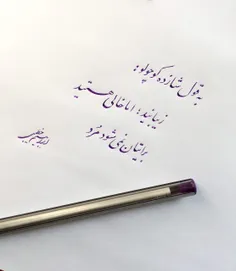 به قول شازده کوچولو:
زیبایید؛ اما خالی هستید
برایتان نمی‌شود مُرد